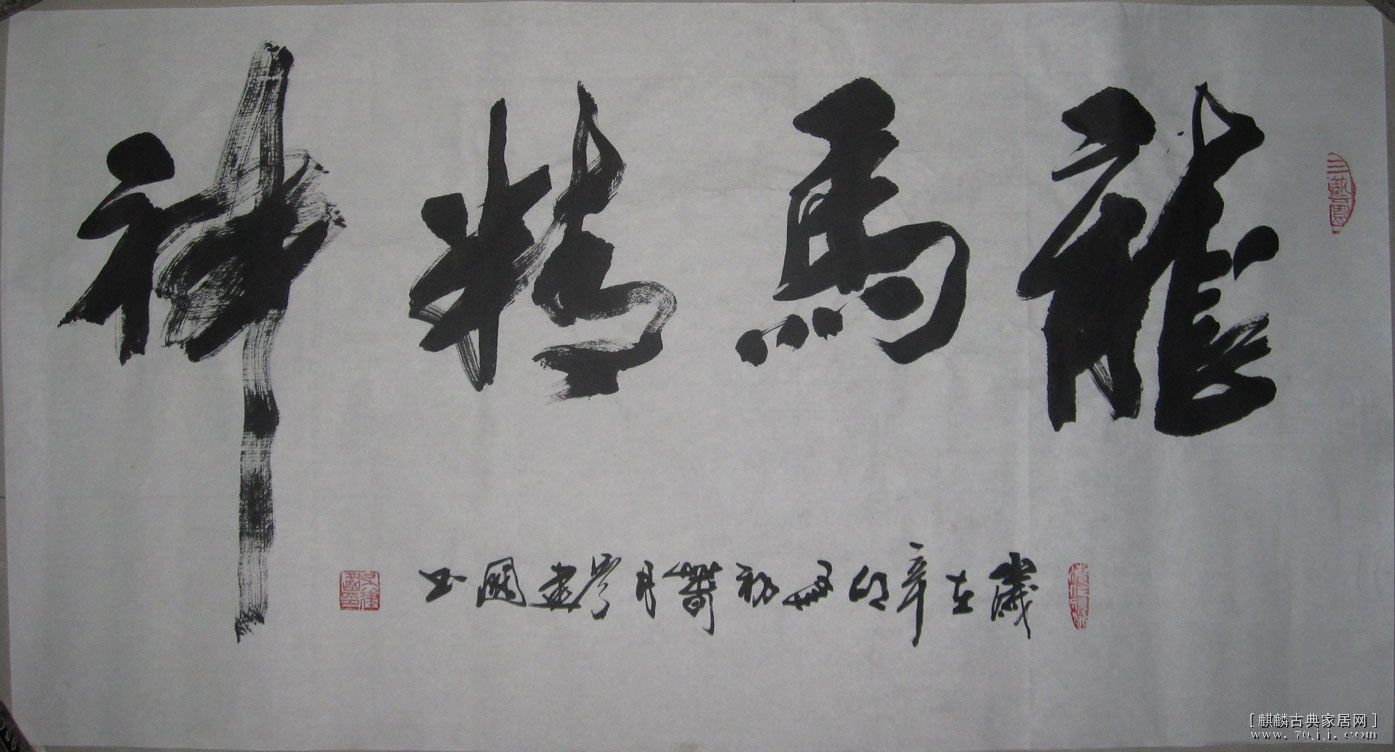 龍馬精神
歲在辛卯初月吳建國書
[麒麟古典家居网]
www.70jj.com